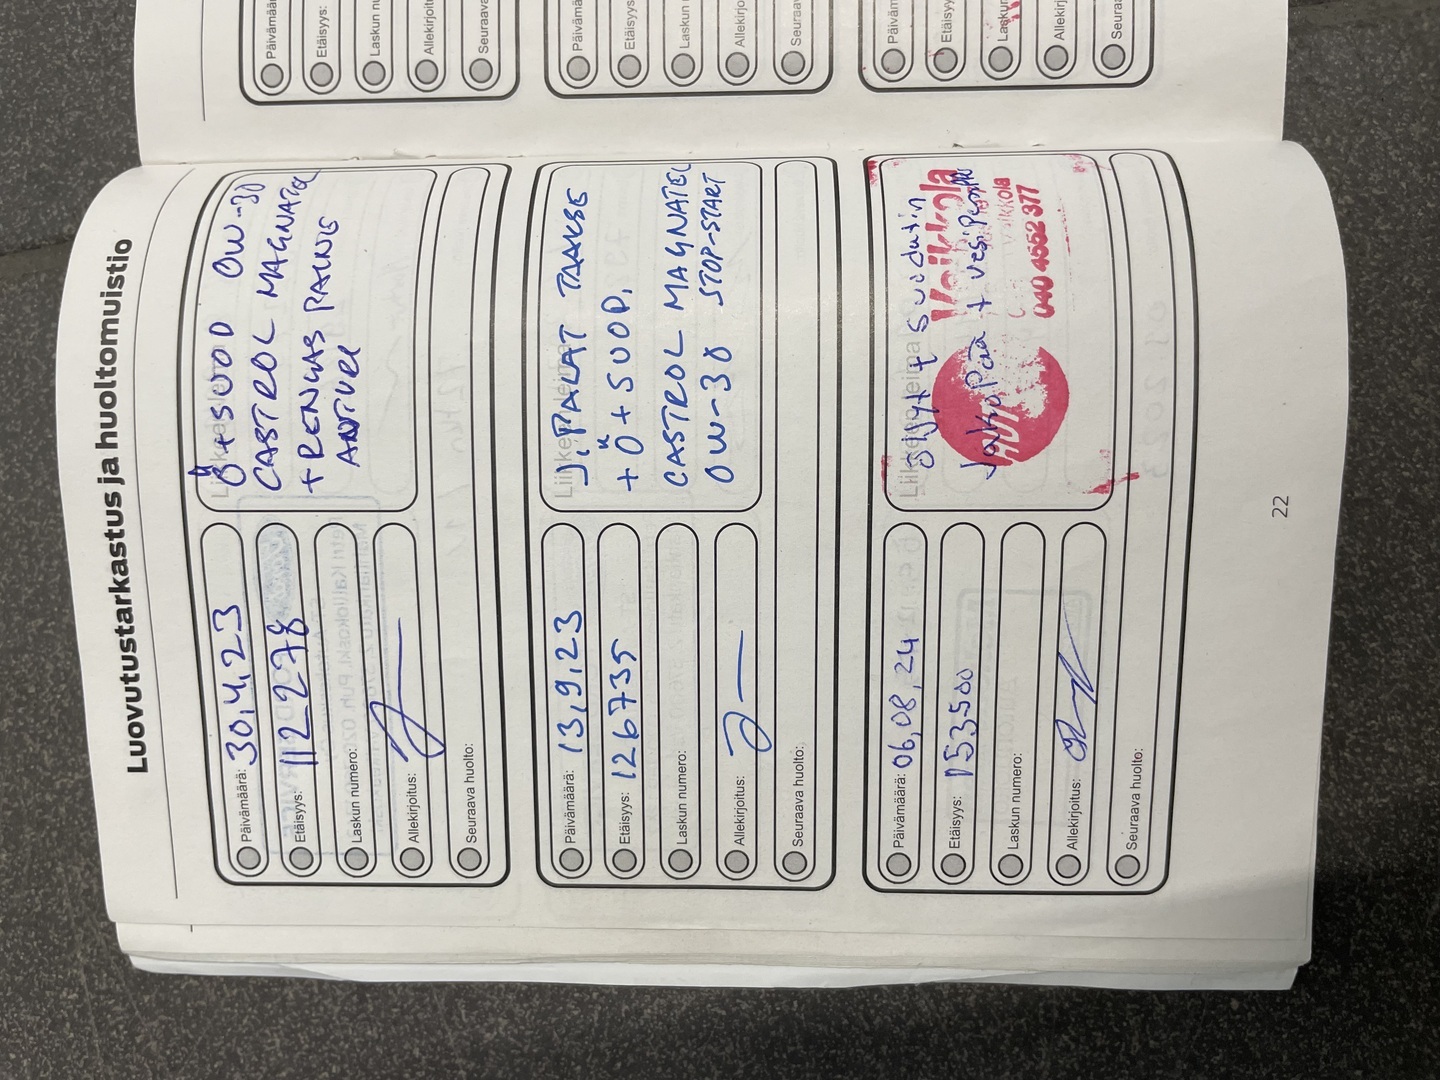 Luovutustarkastus ja huoltomuistio
Päivämäärä: 30,4,23
Etäisyys: 112278
Laskun numero:
Allekirjoitus:
Seuraava huolto:
Ö+SUOD 0W-30
CASTROL MAGNATEL
+RENGAS PAINE
ANTURI
Päivämäärä: 13,9,23
Etäisyys: 126735
Laskun numero:
Allekirjoitus:
Seuraava huolto:
Liikkeen leima
J.PALAT TAAKSE
+Ö+SUOD.
CASTROL MAGNATEL
0W-30 STOP-START
Päivämäärä: 06,08,24
Etäisyys: 153500
Laskun numero:
Allekirjoitus:
Seuraava huolto:
Liikkeen leima
öljyt + suodatin
Jakopää + vesipumppu
Veikkola
Veikkola
040 4552 377
22
Päivämäärä
Etäisyys:
Laskun nu
Allekirjoit
Seuraava
Päivämä
Etäisyys
Laskun
Allekirjo
Seurav
Päiväm
Etäisyys
Laskun
Allekirj
Seuraa